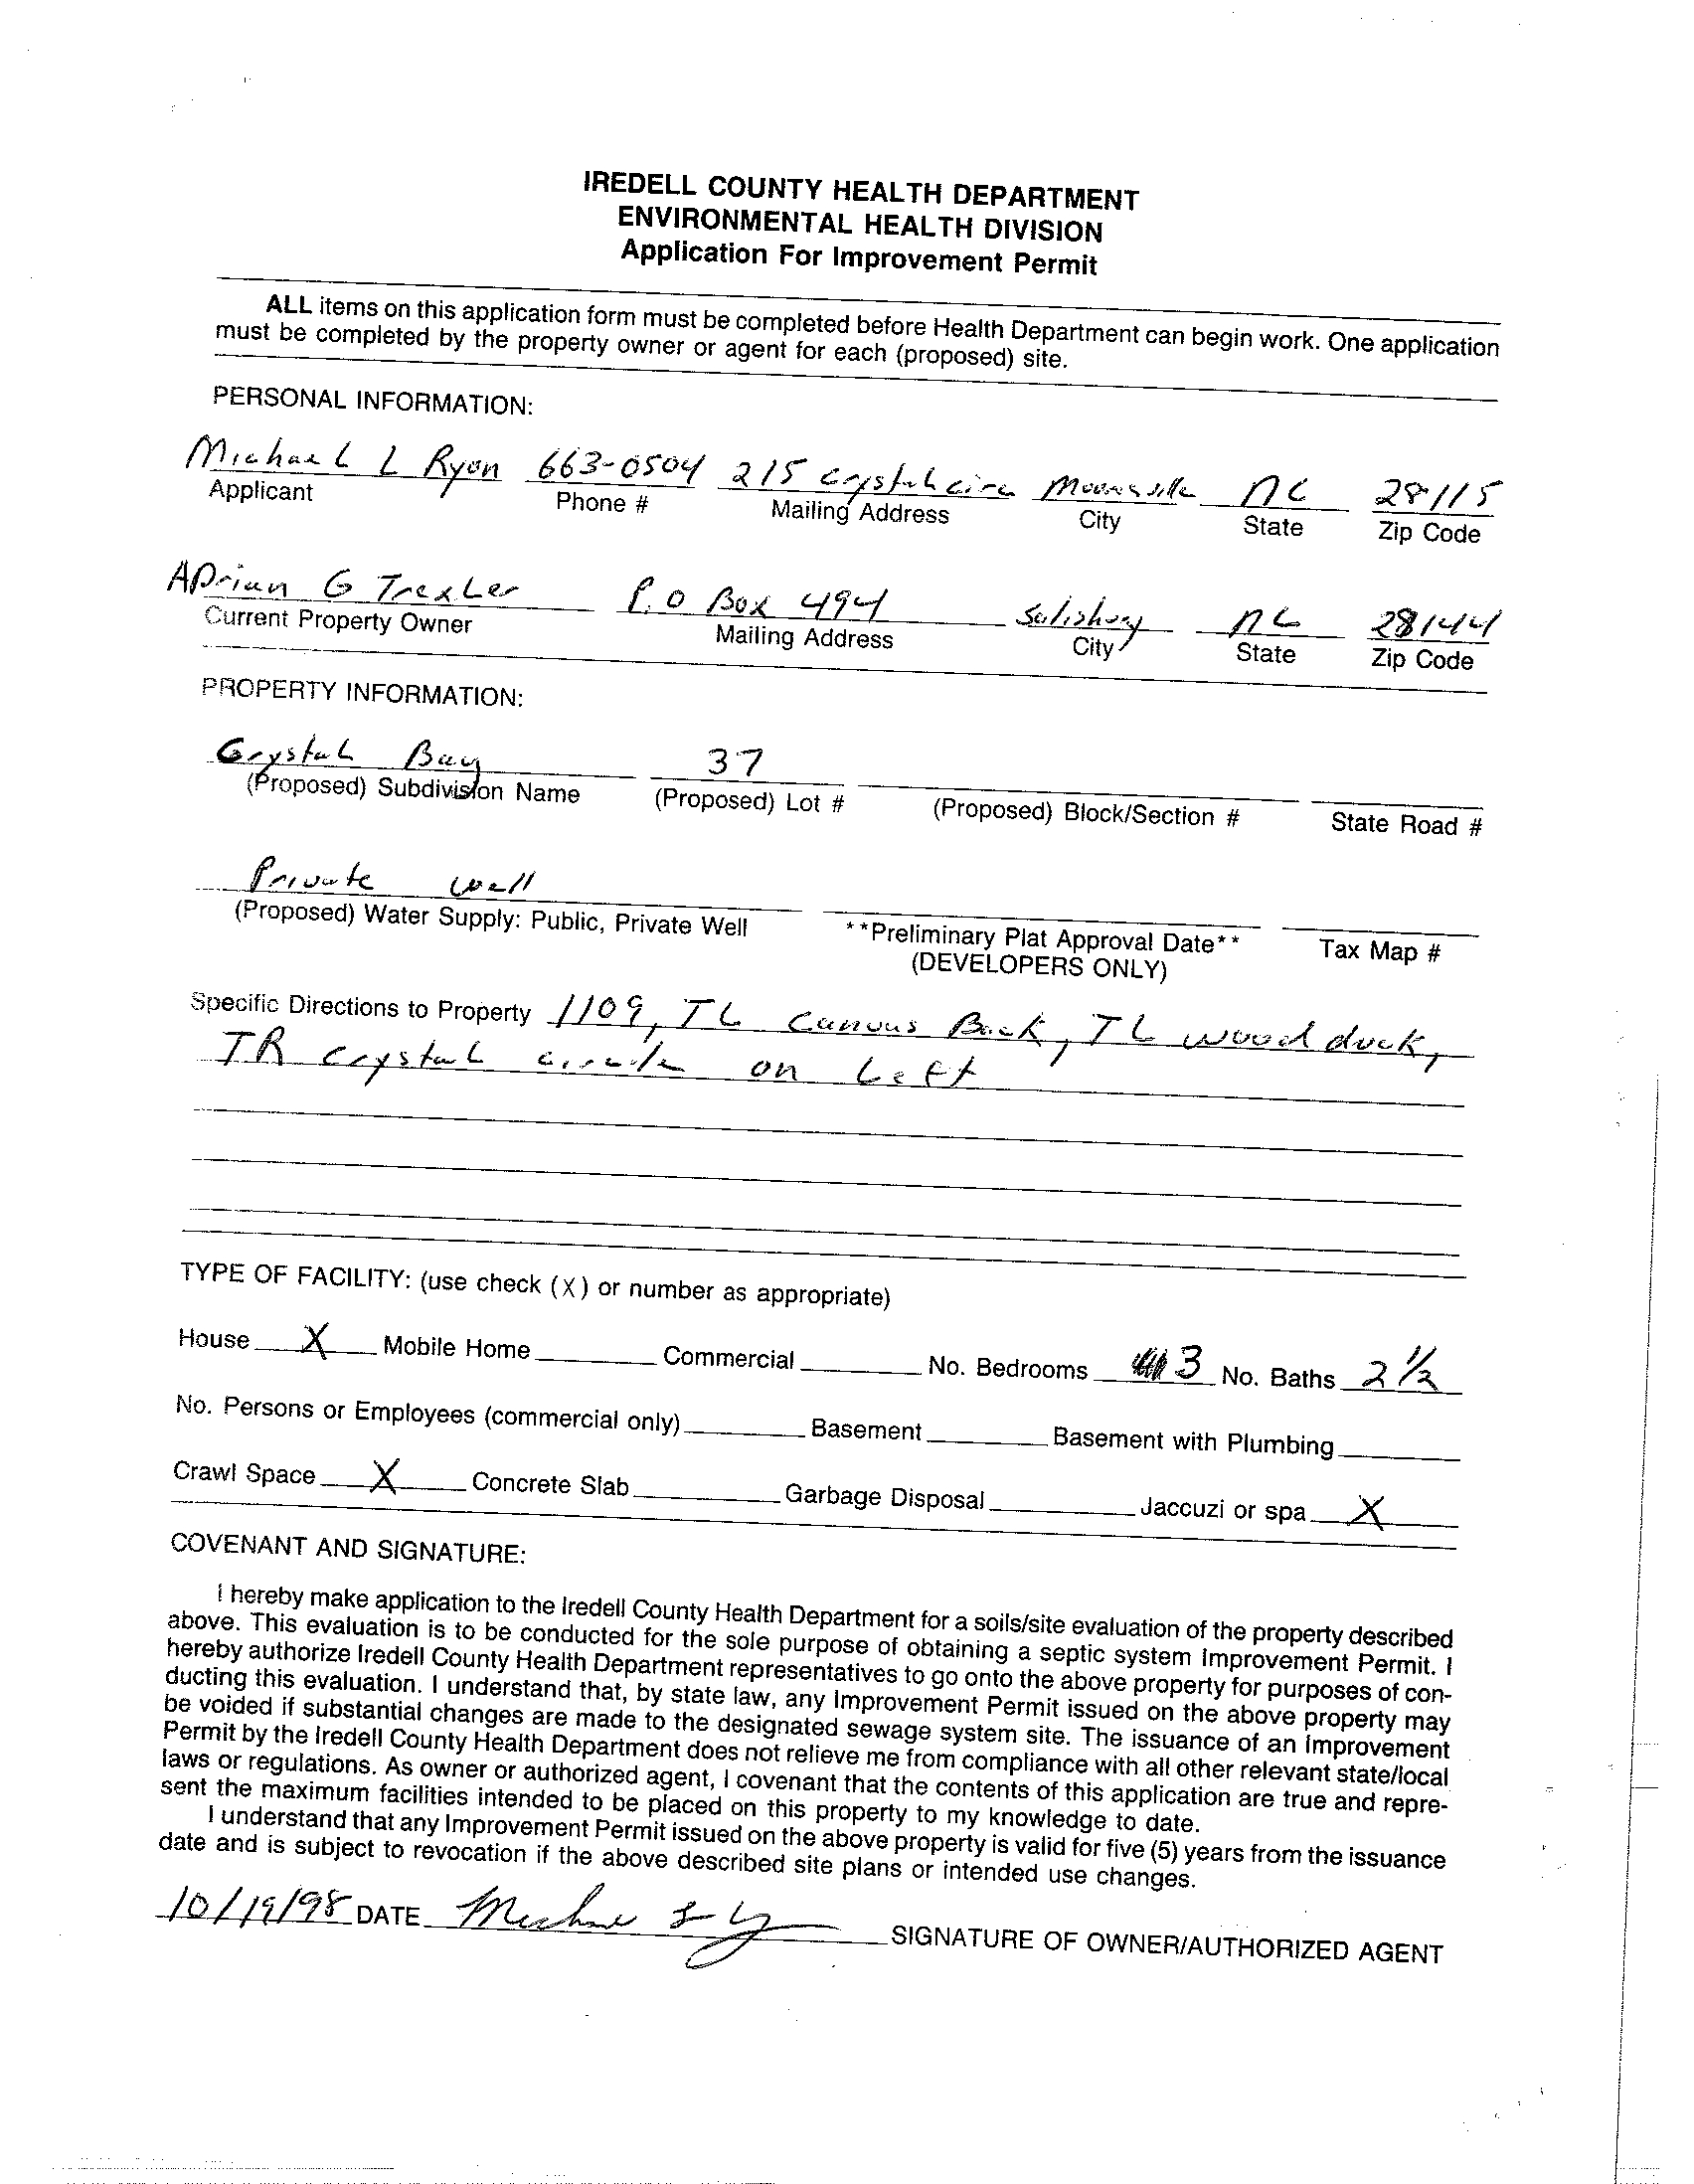 IREDELL COUNTY HEALTH DEPARTMENT
ENVIRONMENTAL HEALTH DIVISION
Application For Improvement Permit
ALL items on this application form must be completed before Health Department can begin work. One application
must be completed by the property owner or agent for each (proposed) site.
PERSONAL INFORMATION:
Michael L Ryan 663-0504 215 Crystal circ Mooresville NC 28115
Applicant Phone # Mailing Address City State Zip Code
ADrian G TrexLer P.O Box 494 Salisbury NC 28144
Current Property Owner Mailing Address City State Zip Code
PROPERTY INFORMATION:
Crystal Bay 37
(Proposed) Subdivision Name (Proposed) Lot # (Proposed) Block/Section # State Road #
Private well
(Proposed) Water Supply: Public, Private Well **Preliminary Plat Approval Date** Tax Map #
(DEVELOPERS ONLY)
Specific Directions to Property 1109, TL Canvus Back, TL wood duck,
TR crystal circle on Left
TYPE OF FACILITY: (use check (X) or number as appropriate)
House X Mobile Home Commercial No. Bedrooms 3 No. Baths 2 1/2
No. Persons or Employees (commercial only) Basement Basement with Plumbing
Crawl Space X Concrete Slab Garbage Disposal Jaccuzi or spa X
COVENANT AND SIGNATURE:
I hereby make application to the Iredell County Health Department for a soils/site evaluation of the property described
above. This evaluation is to be conducted for the sole purpose of obtaining a septic system Improvement Permit. I
hereby authorize Iredell County Health Department representatives to go onto the above property for purposes of con-
ducting this evaluation. I understand that, by state law, any Improvement Permit issued on the above property may
be voided if substantial changes are made to the designated sewage system site. The issuance of an Improvement
Permit by the Iredell County Health Department does not relieve me from compliance with all other relevant state/local
laws or regulations. As owner or authorized agent, I covenant that the contents of this application are true and repre-
sent the maximum facilities intended to be placed on this property to my knowledge to date.
I understand that any Improvement Permit issued on the above property is valid for five (5) years from the issuance
date and is subject to revocation if the above described site plans or intended use changes.
10/19/98 DATE SIGNATURE OF OWNER/AUTHORIZED AGENT